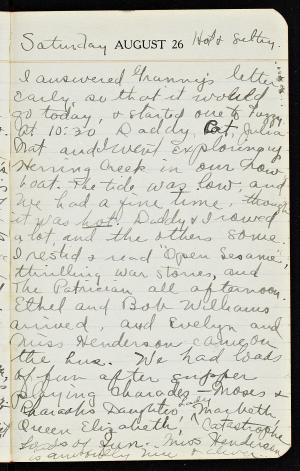 Saturday AUGUST 26 Hot & sultry.
I answered Granny's letter
early, so that it would
go today, & started one to Fuzzy.
At 10:30 Daddy, Cat, Julia
Nat and I went exploring
Herring Creek in our row
boat. The tide was low, and
we had a fine time, though
it was hot. Daddy & I rowed
a lot, and the others some.
I rested & read "Open Sesame",
thrilling war stories, and
The Patrician all afternoon.
Ethel and Bob Williams
arrived, and Evelyn and
Miss Henderson came on
the bus. We had loads
of fun after supper
playing charades – Moses &
Pharaoh's Daughter, Macbeth
Queen Elizabeth, Catastrophe
Loads of fun. Miss Henderson
is awfully nice & clever